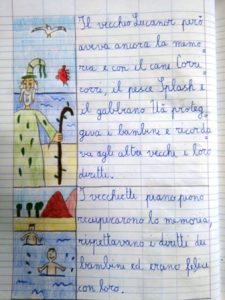 Il vecchio Lucanor però
aveva ancora la memo
ria e con il cane Corri
corri, il pesce Splash e
il gabbiano Ità proteg
geva i bambini e ricorda
va agli altri vecchi i loro
diritti.
I vecchietti pian piano
recuperarono la memoria,
rispettavano i diritti dei
bambini ed erano felici
con loro.